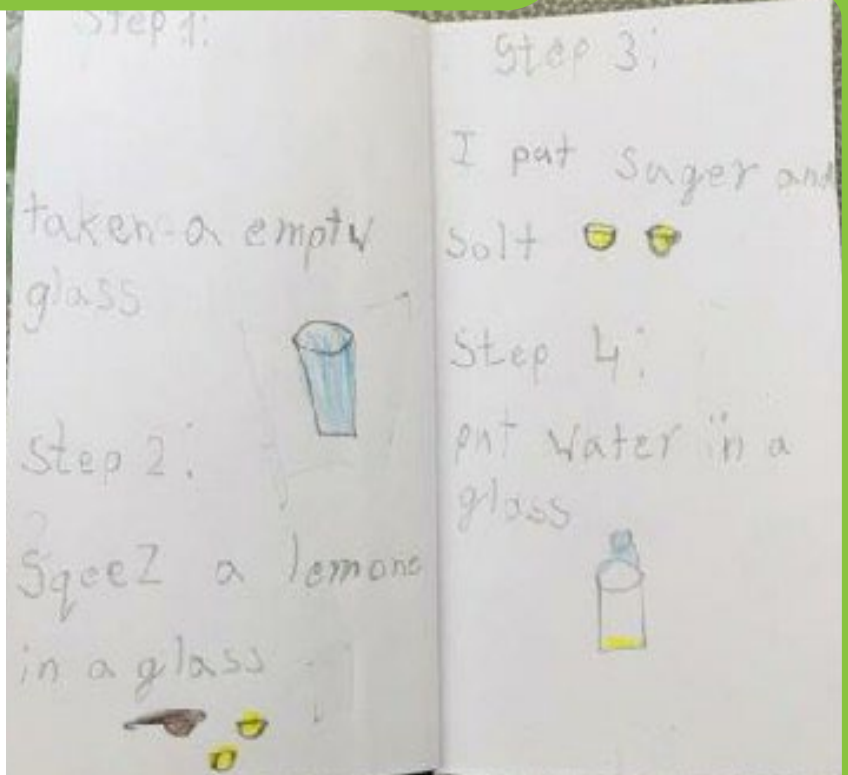 Step 1:
taken a empty
glass
Step 2:
Sqeez a lemone
in a glass
Step 3:
I put Suger and
Solt
Step 4:
put Water in a
glass